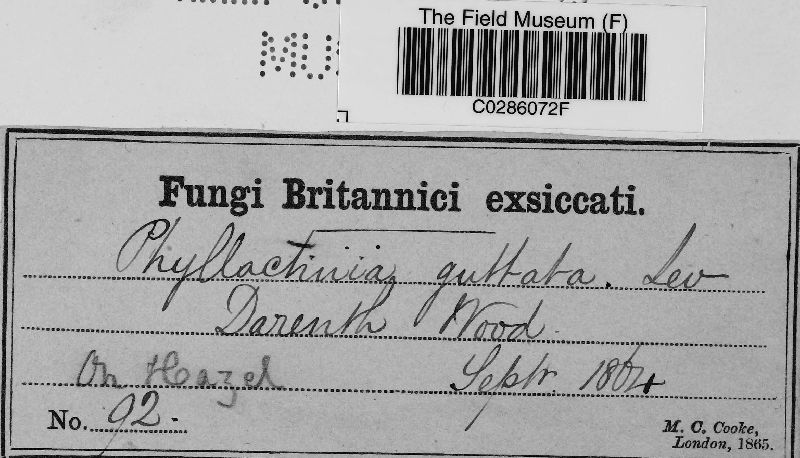 MU
The Field Museum (F)
C0286072F
Fungi Britannici exsiccati.
Phyllactinia guttata. Lev
Darenth Wood.
On Hazel Septr. 1864
No. 92.
M. C. Cooke,
London, 1865.